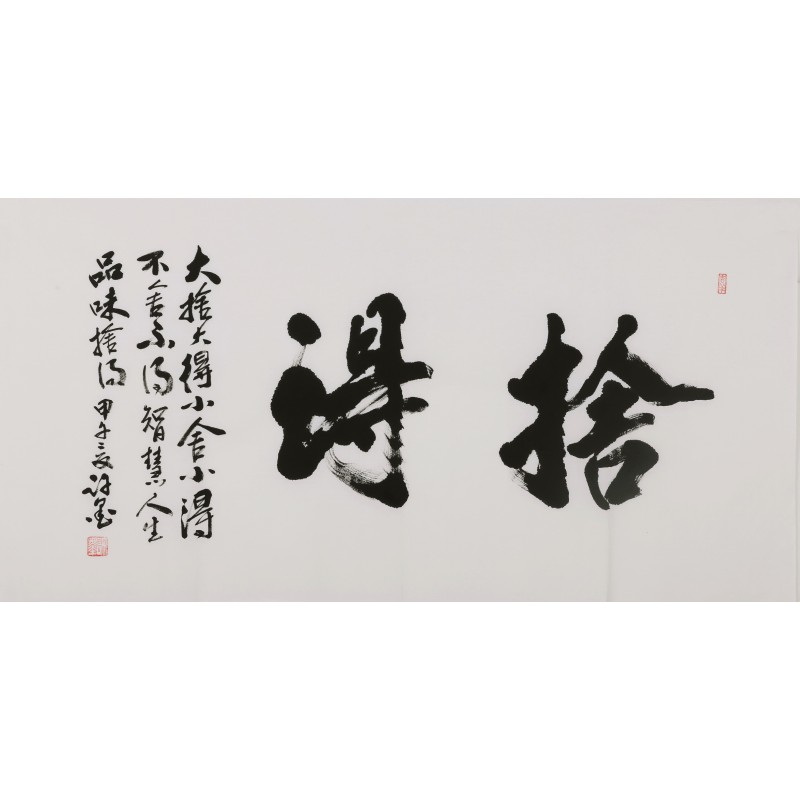 捨得
大捨大得小舍小得
不舍不得智慧人生
品味捨得 甲午夏